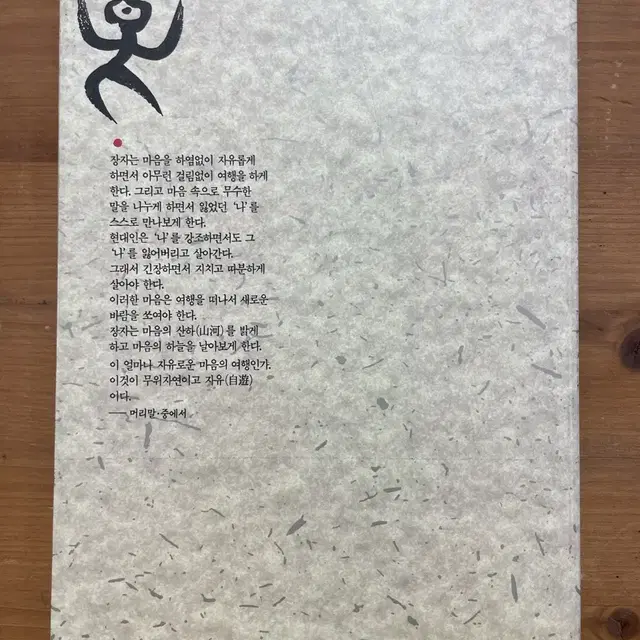 장자는 마음을 하염없이 자유롭게
하면서 아무런 걸림없이 여행을 하게
한다. 그리고 마음 속으로 무수한
말을 나누게 하면서 잃었던 '나'를
스스로 만나보게 한다.
현대인은 '나'를 강조하면서도 그
'나'를 잃어버리고 살아간다.
그래서 긴장하면서 지치고 따분하게
살아야 한다.
이러한 마음은 여행을 떠나서 새로운
바람을 쏘여야 한다.
장자는 마음의 산하(山河)를 밝게
하고 마음의 하늘을 날아보게 한다.
이 얼마나 자유로운 마음의 여행인가.
이것이 무위자연이고 자유(自遊)
아다.
── 머리말·중에서